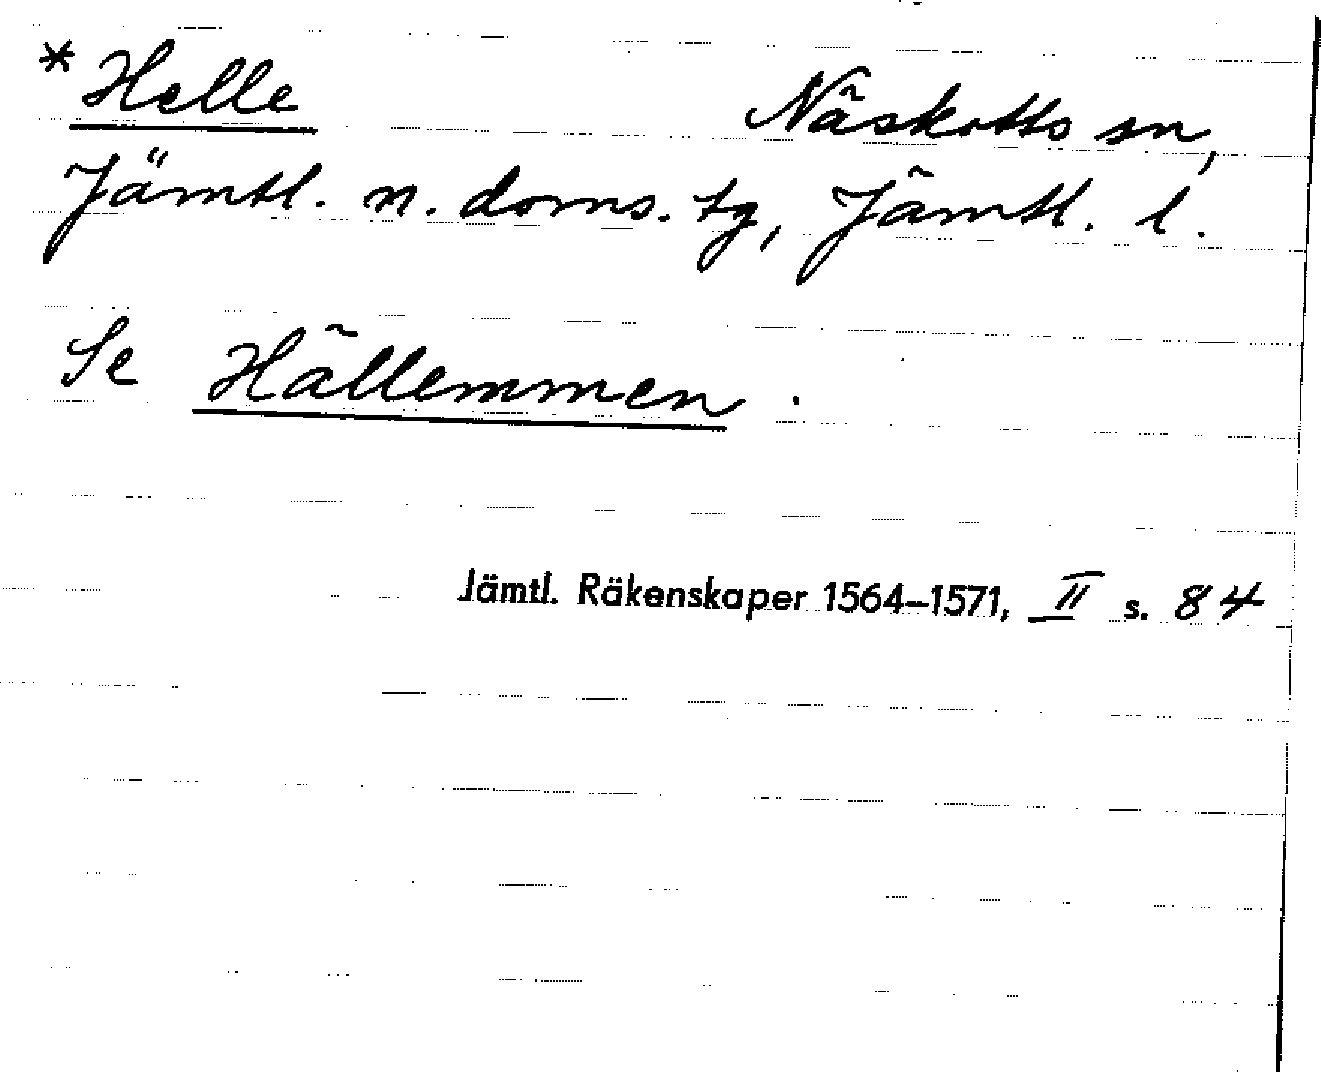 *Helle Näskotts sn,
Jämtl. n. doms. tg, Jämtl. l.
Se Hällemmen.
Jämtl. Räkenskaper 1564–1571, II s. 84